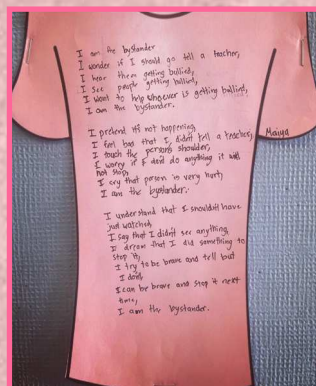 I am the bystander
I wonder if I should go tell a teacher,
I hear them getting bullied,
I see people getting bullied,
I want to help whoever is getting bullied,
I am the bystander.
I pretend it's not happening,
I feel bad that I didn't tell a teacher,
I touch the persons shoulder,
I worry if I don't do anything it will
not stop,
I cry that person is very hurt,
I am the bystander.
Maiya
I understand that I shouldn't have
just watched,
I say that I didn't see anything,
I dream that I did something to
stop it,
I try to be brave and tell but
I don't,
I can be brave and stop it next
time,
I am the bystander.